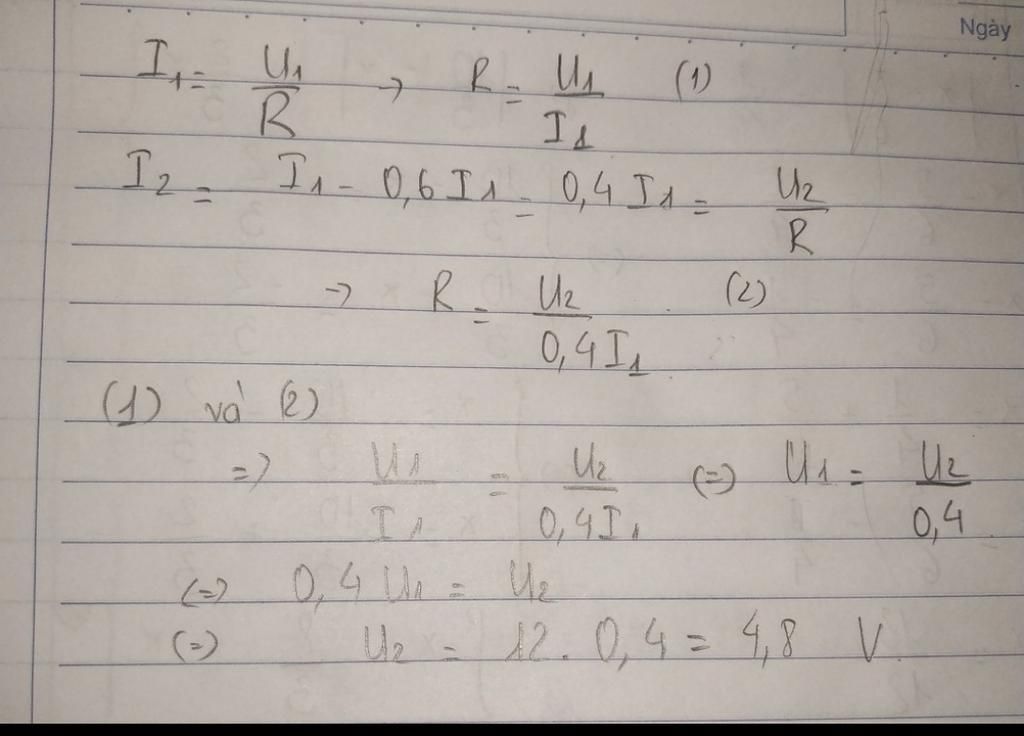 Ngày
I₁ = U₁/R → R = U₁/I₁ (1)
I₂ = I₁ - 0,6I₁ = 0,4I₁ = U₂/R
→ R = U₂/0,4I₁ (2)
(1) và (2)
=> U₁/I₁ = U₂/0,4I₁ (=) U₁ = U₂/0,4
(=) 0,4U₁ = U₂
(=) U₂ = 12. 0,4 = 4,8 V